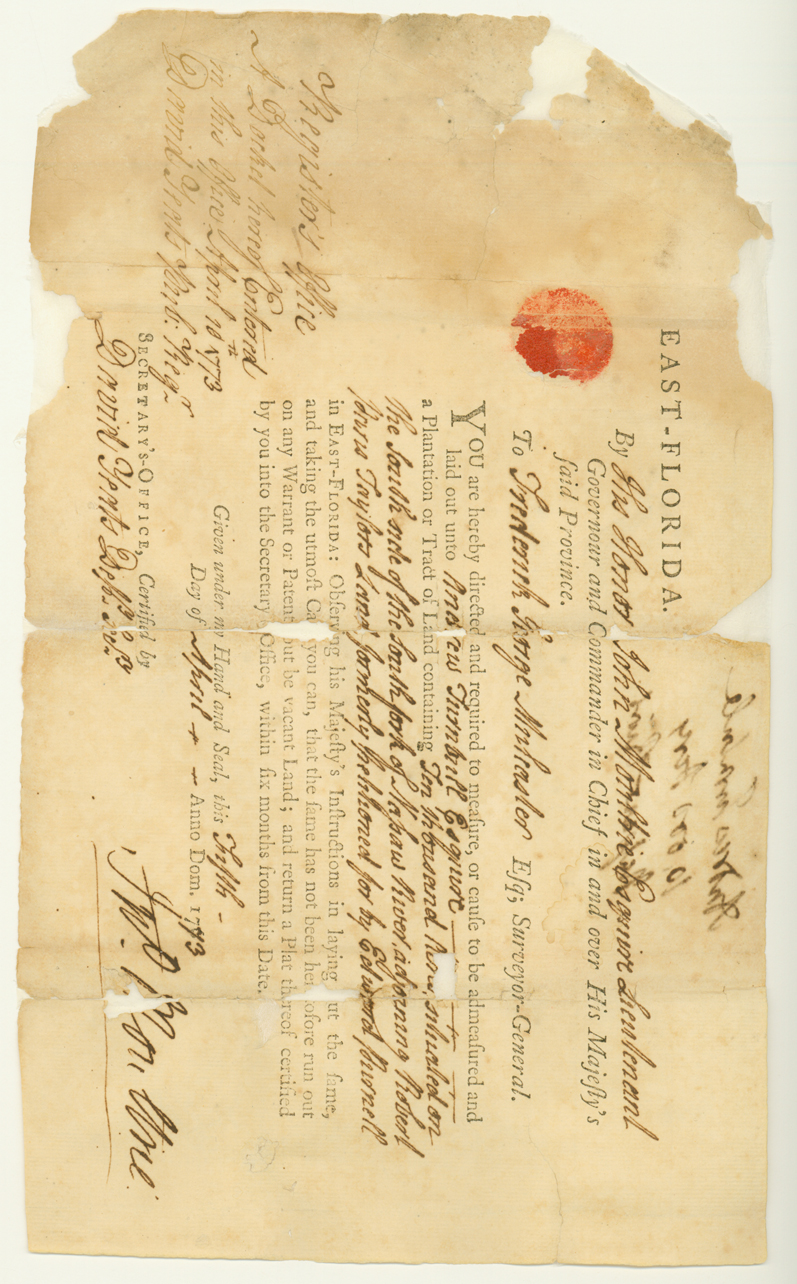 EAST-FLORIDA.
By His Honor John Moultrie Esquire Lieutenant
Governour and Commander in Chief in and over His Majeſty's
ſaid Province.
To Frederick George Mulcaster Eſq; Surveyor-General.
YOU are hereby directed and required to meaſure, or cauſe to be admeaſured and
laid out unto Andrew Turnbull Esquire
a Plantation or Tract of Land containing Ten thousand Acres, situated on
the South side of the South fork of River, adjoining Robert
Taylors Land formerly petitioned for by Edward
in EAST-FLORIDA: Obſerving his Majeſty's Inſtructions in laying out the ſame,
and taking the utmoſt Ca you can, that the ſame has not been her ofore run out
on any Warrant or Patent but be vacant Land; and return a Plat thereof certified
by you into the Secretary Office, within ſix months from this Date.
Given under my Hand and Seal, this Fifth
Day of April Anno Dom. 1773
SECRETARY'S-OFFICE, Certified by
David Yeats Dep. Secy
Jno. Moultrie.
Register's Office
A Docket hereof Entered
in this Office April 10th 1773
David Yeats Dep. Regr